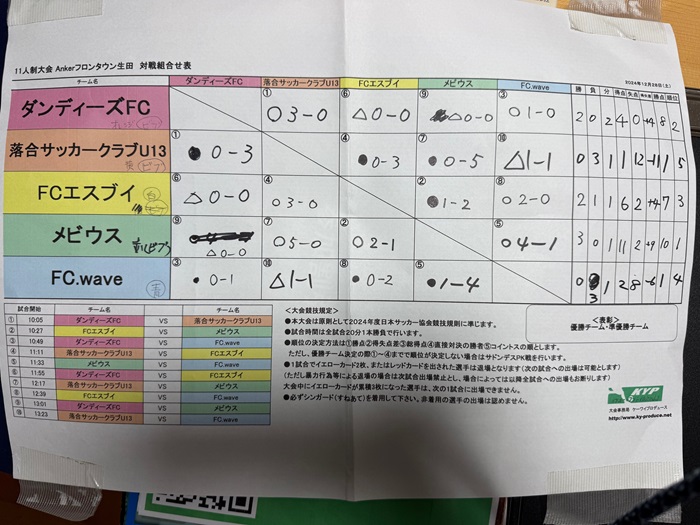 11人制大会 Ankerフロンタウン生田 対戦組合せ表
2024年12月28日(土)
チーム名 ダンディーズFC 落合サッカークラブU13 FCエスブイ メビウス FC.wave 勝 負 分 得点 失点 得失差 勝点 順位
ダンディーズFC ① ○3-0 ⑥ △0-0 ⑨ △0-0 ③ ○1-0 2 0 2 4 0 +4 8 2
落合サッカークラブU13 ① ●0-3 ④ ●0-3 ⑦ ●0-5 ⑩ △1-1 0 3 1 1 12 -11 1 5
FCエスブイ 白 ⑥ △0-0 ④ ○3-0 ② ●1-2 ⑧ ○2-0 2 1 1 6 2 +4 7 3
メビウス ⑨ △0-0 ⑦ ○5-0 ② ○2-1 ⑤ ○4-1 3 0 1 11 2 +9 10 1
FC.wave 青 ③ ●0-1 ⑩ △1-1 ⑧ ●0-2 ⑤ ●1-4 0 3 1 2 8 -6 1 4
試合開始 チーム名 チーム名
① 10:05 ダンディーズFC VS 落合サッカークラブU13
② 10:27 FCエスブイ VS メビウス
③ 10:49 ダンディーズFC VS FC.wave
④ 11:11 落合サッカークラブU13 VS FCエスブイ
⑤ 11:33 メビウス VS FC.wave
⑥ 11:55 ダンディーズFC VS FCエスブイ
⑦ 12:17 落合サッカークラブU13 VS メビウス
⑧ 12:39 FCエスブイ VS FC.wave
⑨ 13:01 ダンディーズFC VS メビウス
⑩ 13:23 落合サッカークラブU13 VS FC.wave
<大会競技規定>
●本大会は原則として2024年度日本サッカー協会競技規則に準じます。
●試合時間は全試合20分1本勝負で行います。
●順位の決定方法は①勝点②得失点差③総得点④直接対決の勝者⑤コイントスの順とします。
ただし、優勝チーム決定の際①~④までで順位が決定しない場合はサドンデスPK戦を行います。
●1試合でイエローカード2枚、またはレッドカードを出された選手は退場となります(次の試合への出場は可能とします)
(ただし暴力行為等による退場の場合は次試合出場禁止とし、場合によっては以降全試合への出場もお断りします)
大会中にイエローカードが累積3枚になった選手は、次の1試合に出場できません。
●必ずシンガード(すねあて)を着用して下さい。非着用の選手の出場は認めません。
<表彰>
優勝チーム・準優勝チーム
KYP
大会事務局 ケーワイプロデュース
http://www.ky-produce.net